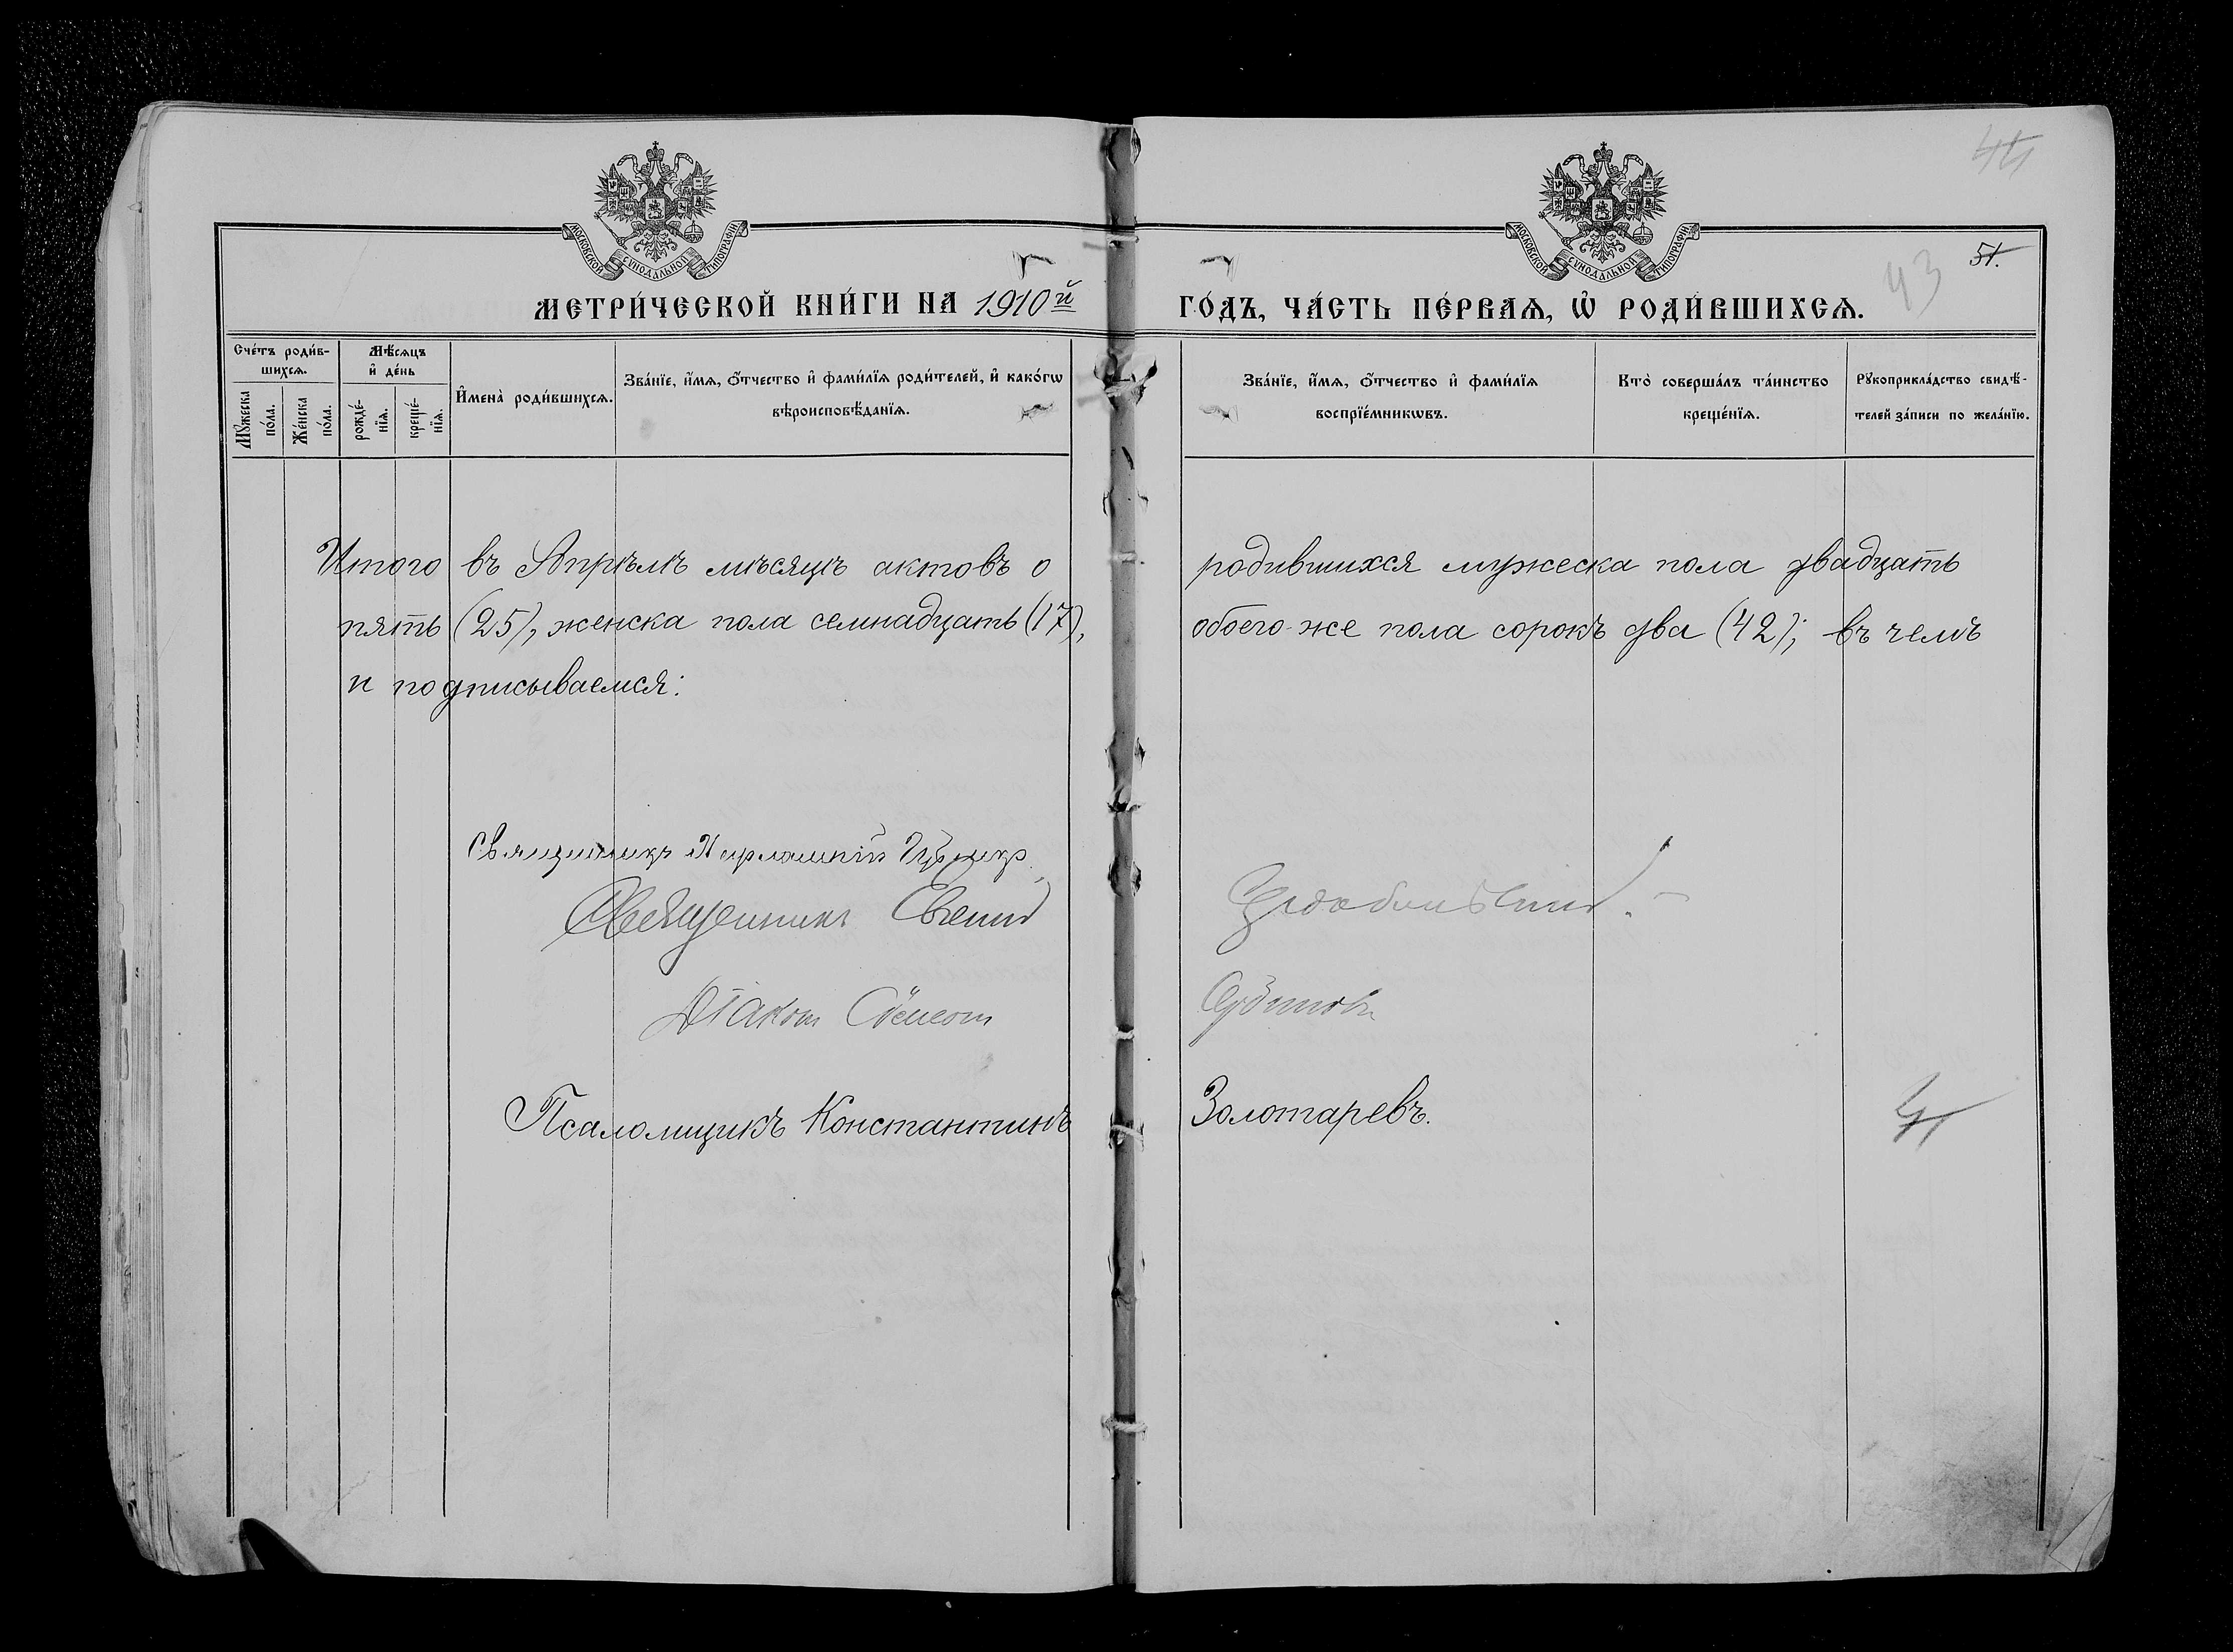 44
МОСКОВСКОЙ СѴНОДАЛЬНОЙ ТИПОГРАФІИ
МОСКОВСКОЙ СѴНОДАЛЬНОЙ ТИПОГРАФІИ
51.
43
МЕТРИ́ЧЕСКОЙ КНИ́ГИ НА 1910й ГО́ДЪ, ЧА́СТЬ ПЕ́РВАѦ, Ѡ҆ РОДИ́ВШИХСѦ.
Сче́тъ роди́в-
шихсѧ.
Мꙋжеска
по́ла.
Же́нска
по́ла.
Мѣ́сѧцъ
и҆ де́нь
рожде́-
нїѧ.
креще́-
нїѧ.
И҆мена̀ роди́вшихсѧ.
Зва́нїе, и҆́мѧ, ѻ҆́тчество и҆ фами́лїѧ роди́телей, и҆ како́гѡ
вѣроисповѣ́данїѧ.
Зва́нїе, и҆́мѧ, ѻ҆́тчество и҆ фами́лїѧ
воспрїе́мникѡвъ.
Кто̀ соверша́лъ та́инство
креще́нїѧ.
Рꙋкоприкла́дство свидѣ́-
телей за́писи по жела́нїю.
Итого въ Апрѣлѣ мѣсяцѣ актовъ о родившихся мужеска пола двадцать
пять (25), женска пола семнадцать (17), обоего-же пола сорокъ два (42); въ чемъ
и подписываемся:
Священникъ
Священникъ Евгений
Діаконъ Симеон
Псаломщикъ Константинъ Золотаревъ.